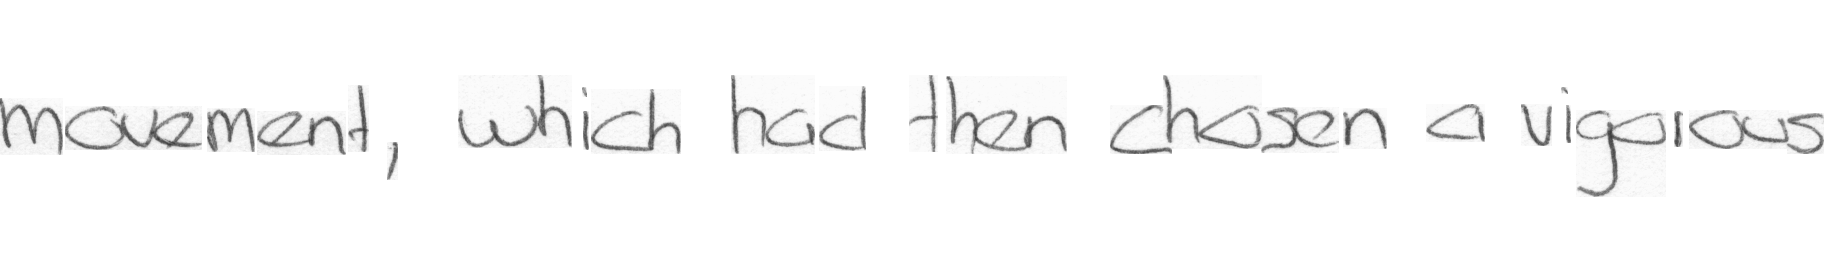 movement, which had then chosen a vigorous